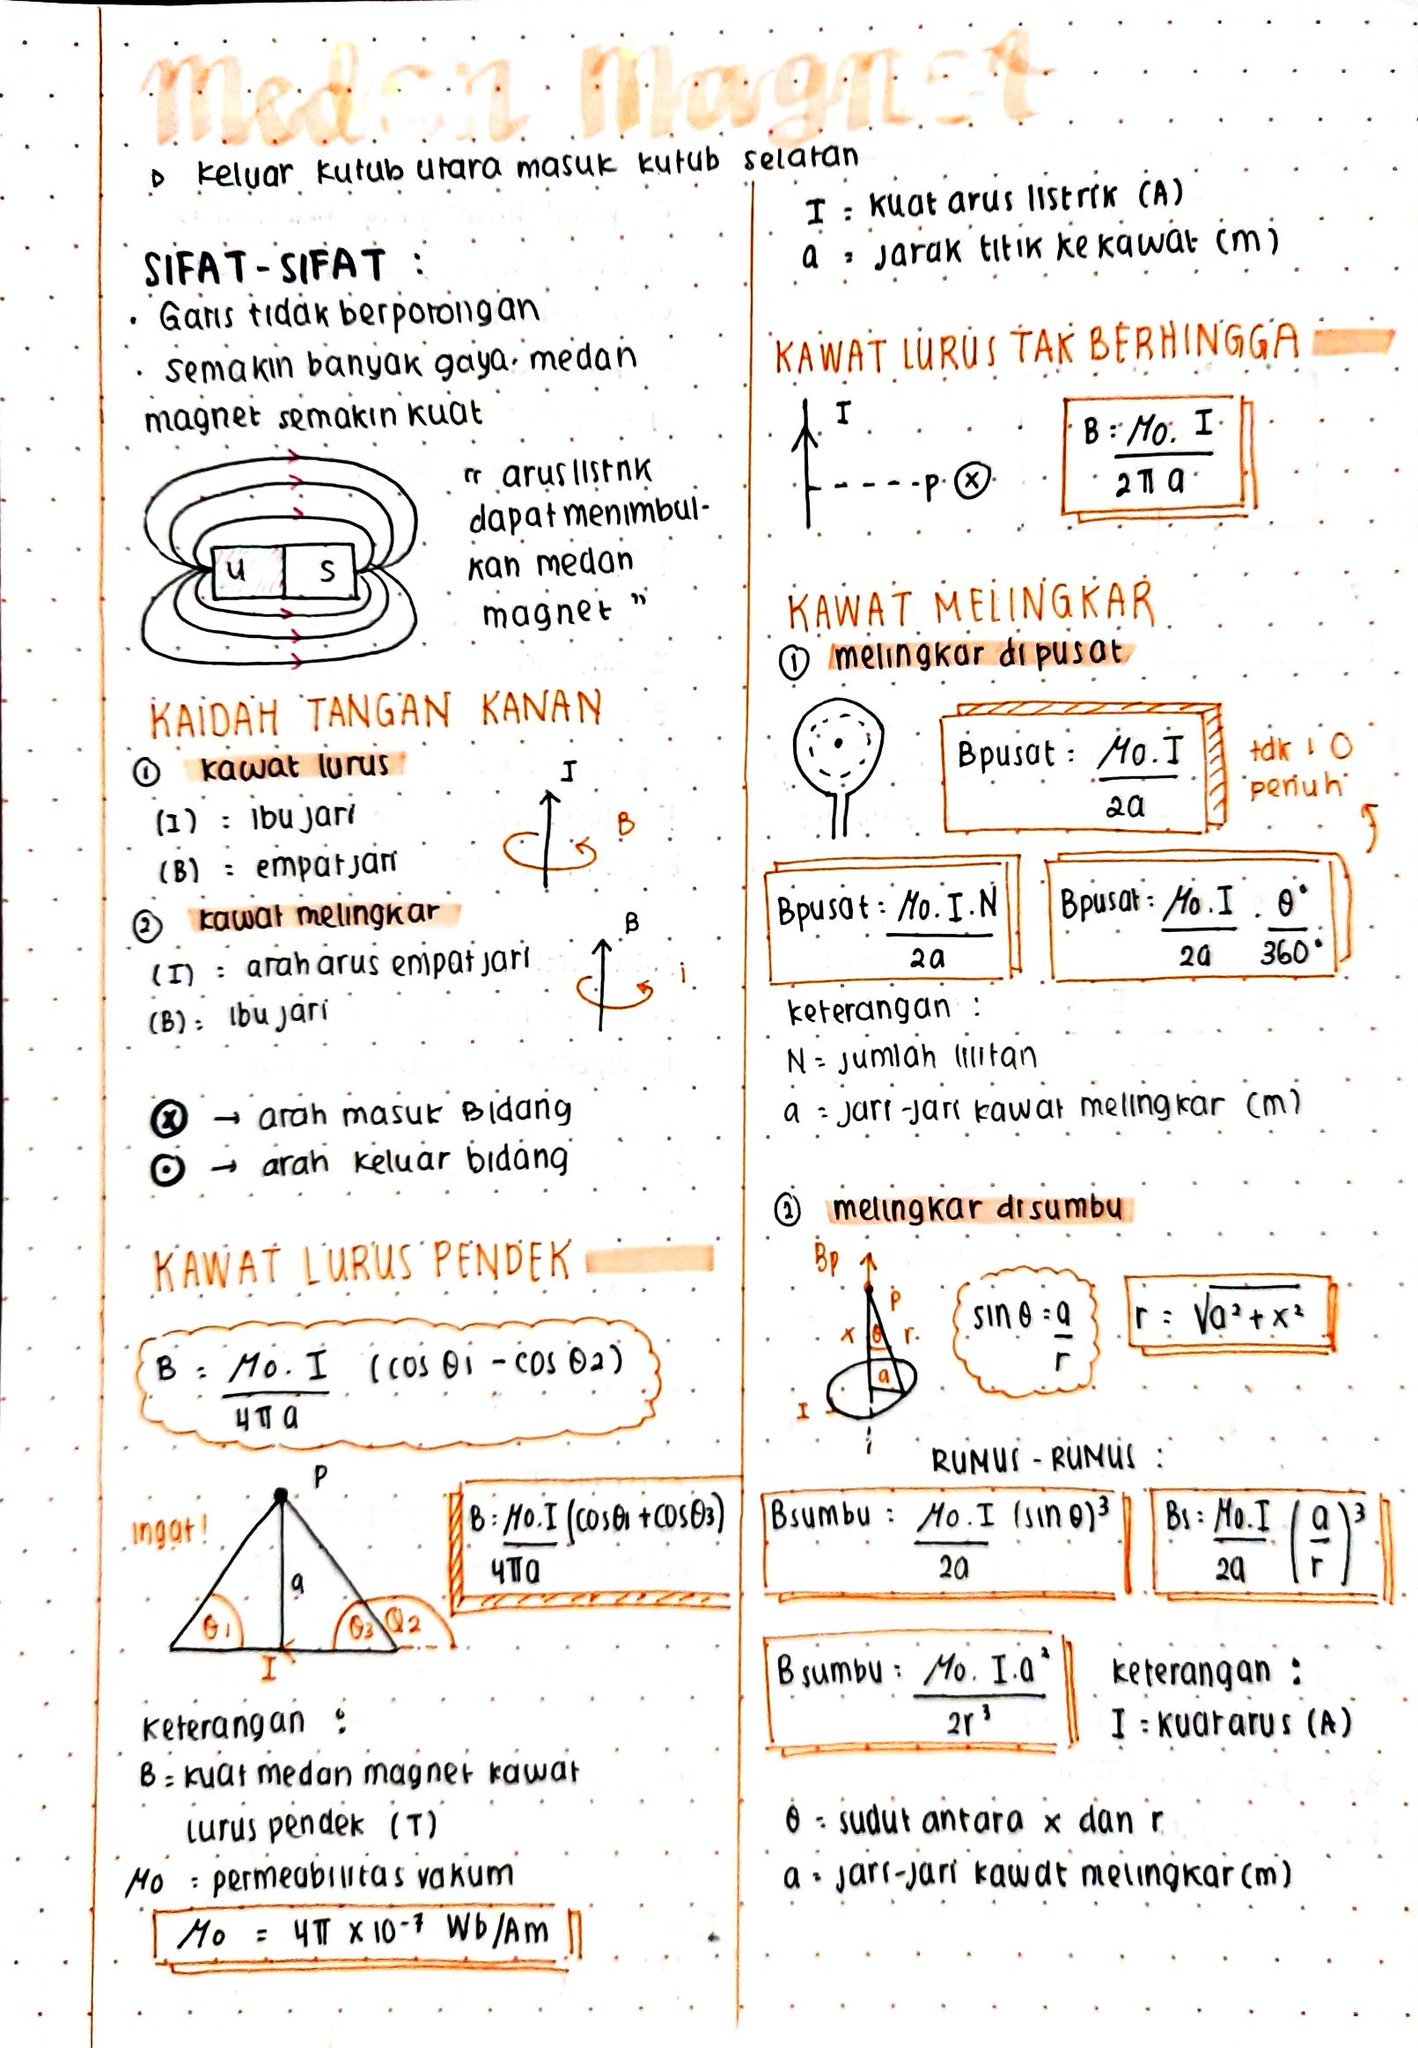 Medan Magnet
▷ Keluar kutub utara masuk kutub selatan
SIFAT-SIFAT :
• Garis tidak berpotongan
• semakin banyak gaya medan
magnet semakin kuat
U S
" arus listrik
dapat menimbul-
kan medan
magnet "
KAIDAH TANGAN KANAN
① kawat lurus
(I) : ibu jari
(B) : empat jari
I
B
② kawat melingkar
(I) : arah arus empat jari
(B) : ibu jari
B
i
ⓧ → arah masuk Bidang
⊙ → arah keluar bidang
KAWAT LURUS PENDEK
B = μo. I / 4π a (cos θ1 - cos θ2)
ingat!
P
a
θ1 θ3 θ2
I
B = μo.I / 4πa (cosθ1 + cosθ3)
keterangan :
B = kuat medan magnet kawat
lurus pendek (T)
μo = permeabilitas vakum
μo = 4π x 10⁻⁷ Wb/Am
I = kuat arus listrik (A)
a = jarak titik ke kawat (m)
KAWAT LURUS TAK BERHINGGA
I
P ⓧ
B = μo. I / 2π a
KAWAT MELINGKAR
① melingkar di pusat
Bpusat = μo. I / 2a
tdk : O
penuh
Bpusat = μo. I. N / 2a
Bpusat = μo. I / 2a . θ° / 360°
keterangan :
N = jumlah lilitan
a = jari-jari kawat melingkar (m)
② melingkar disumbu
Bp
P
x θ r
a
I
i
sin θ = a / r
r = √a² + x²
RUMUS - RUMUS :
Bsumbu = μo. I / 2a (sin θ)³
Bs = μo. I / 2a (a / r)³
Bsumbu = μo. I. a² / 2r³
keterangan :
I = kuat arus (A)
θ = sudut antara x dan r
a = jari-jari kawat melingkar (m)